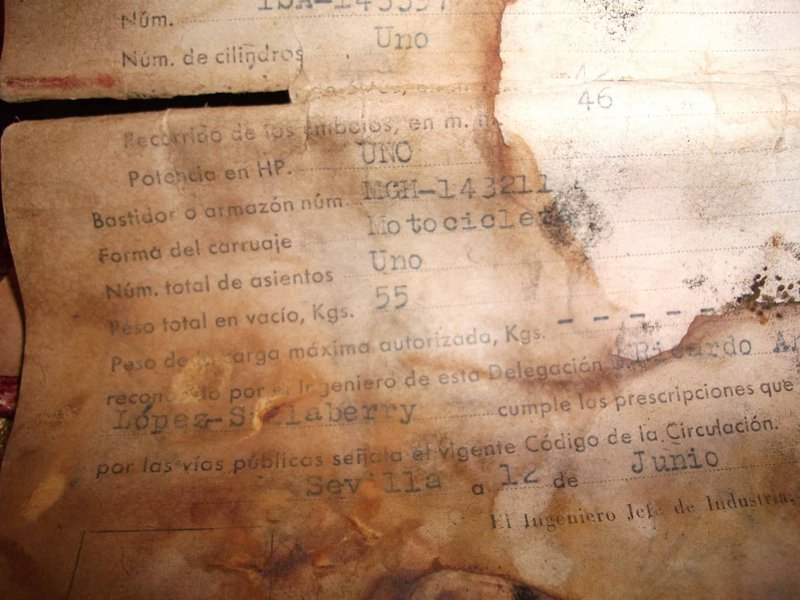 Núm.
Núm. de cilindros Uno
46
Recorrido de los émbolos, en m. m.
Potencia en HP. UNO
Bastidor o armazón núm. MGH-143211
Forma del carruaje Motocicleta
Núm. total de asientos Uno
Peso total en vacío, Kgs. 55
Peso de la carga máxima autorizada, Kgs. - - - - -
reconocido por el Ingeniero de esta Delegación D. Ricardo
López- cumple las prescripciones que
por las vías públicas señala el vigente Código de la Circulación.
Sevilla a 12 de Junio
El Ingeniero Jefe de Industria,